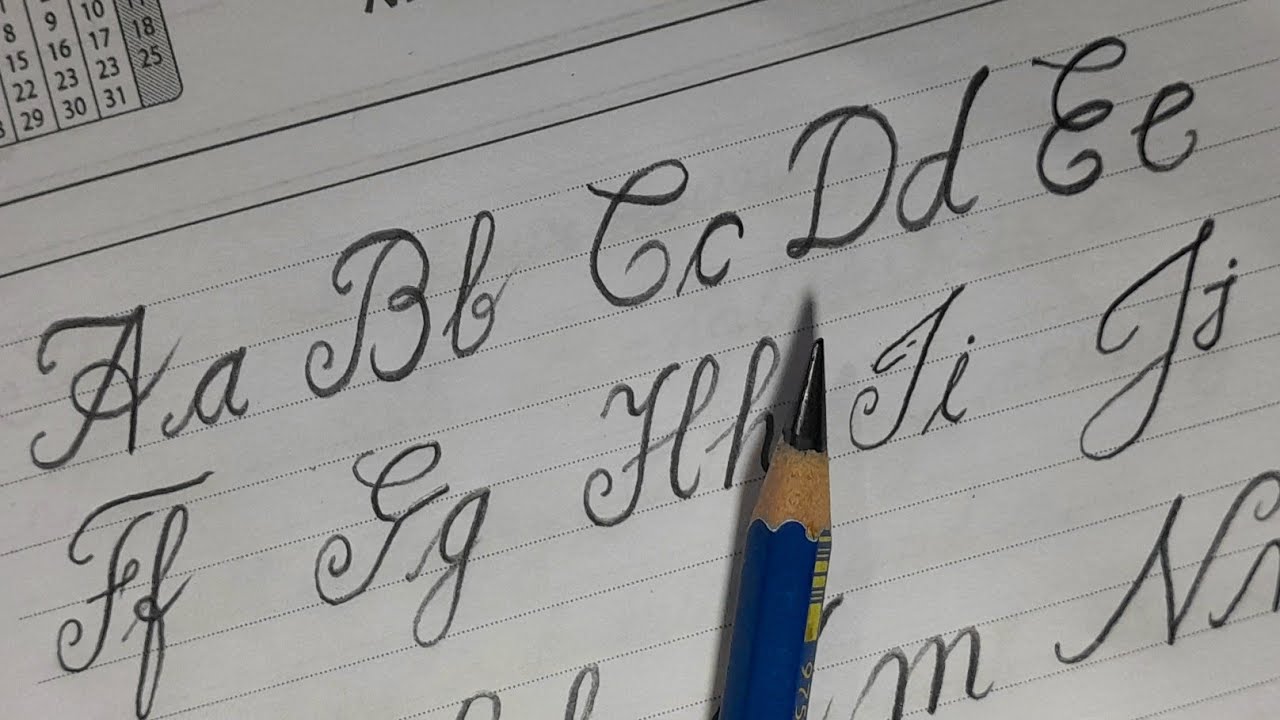 8 9 10 11
15 16 17 18
22 23 23 25
29 30 31
Aa Bb Cc Dd Ee
Ff Gg Hh Ii Jj
m N
975